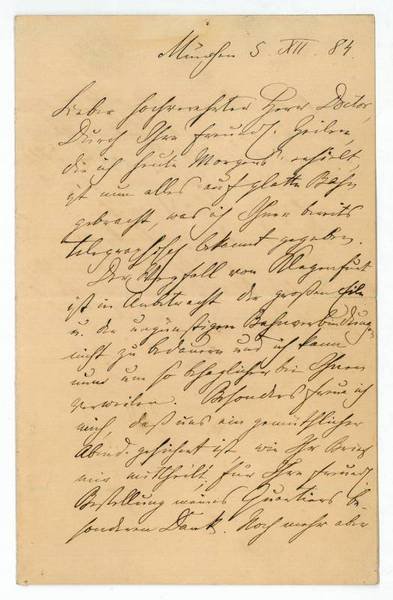 München 5. XII. 84.
Lieber hochverehrter Herr Doctor,
Durch Ihre freundl. Zeilen,
die ich heute Morgens erhielt,
ist nun alles auf glatte Bahn
gebracht, was ich Ihnen bereits
telegraphisch bekannt gegeben.
Der Wegfall von Klagenfurt
ist in Anbetracht der großen Eile
u. der ungünstigen Bahnverbindung
nicht zu bedauern und ich kann
nun um so behaglicher bei Ihnen
verweilen. Besonders freue ich
mich, daß uns ein gemüthlicher
Abend gesichert ist, wie Ihr Brief
mir mittheilt, für Ihre freundl.
Bestellung meines Quartiers be-
sonderen Dank. Noch mehr aber